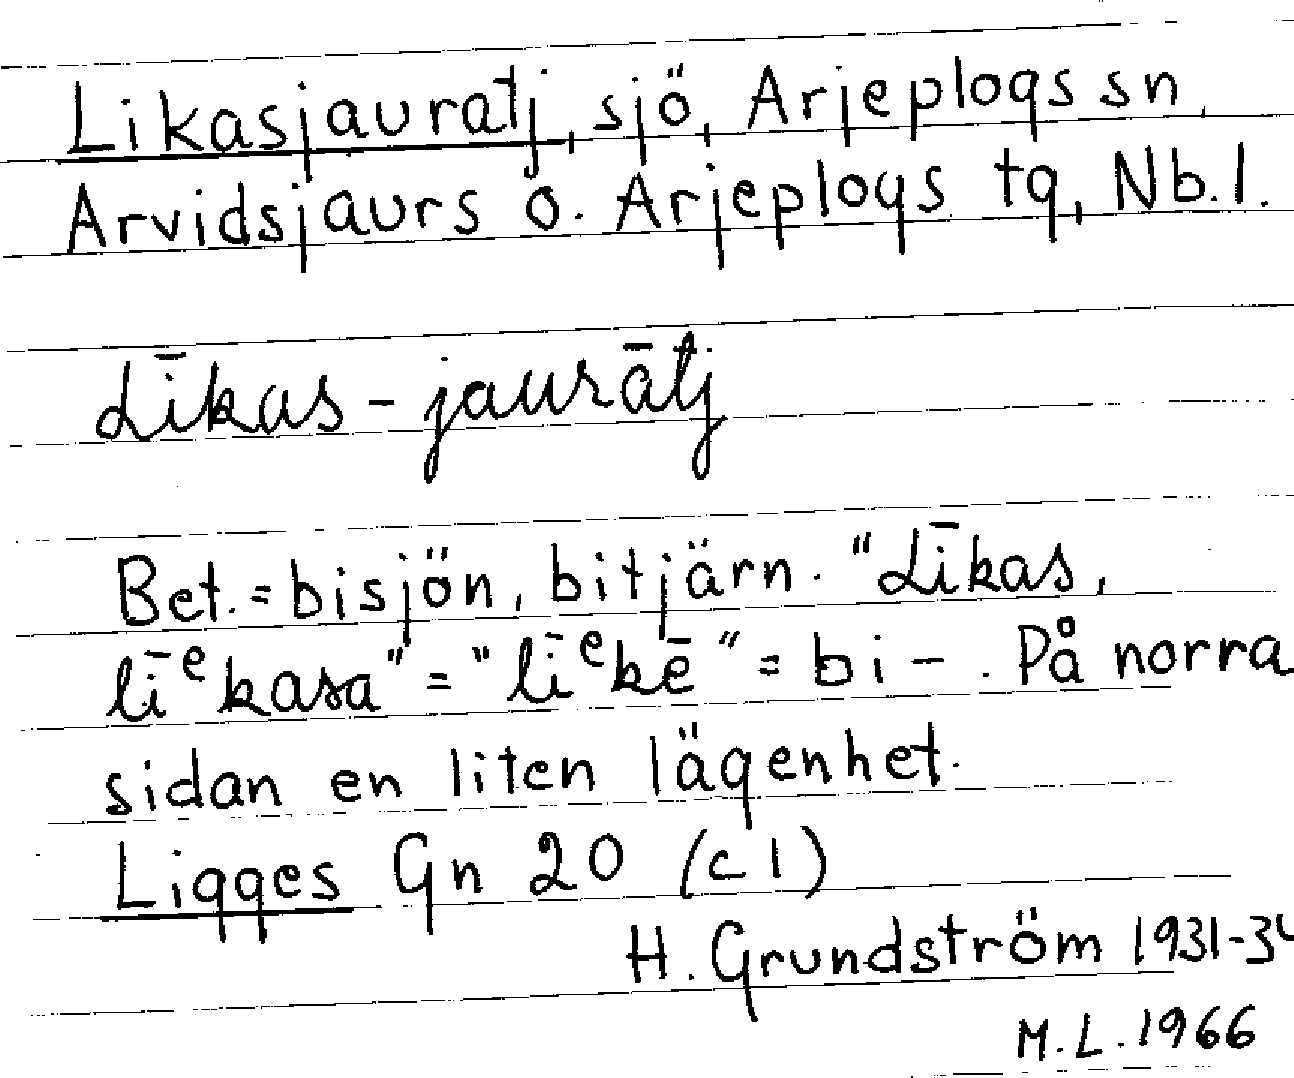 Likasjauratj, sjö, Arjeplogs sn,
Arvidsjaurs o. Arjeplogs tg, Nb.l.
Līkas-jaurātj
Bet. = bisjön, bitjärn. "Līkas,
līᵉkasa" = "līᵉkē" = bi-. På norra
sidan en liten lägenhet.
Ligges Gn 20 (c1)
H. Grundström 1931-34
M.L. 1966